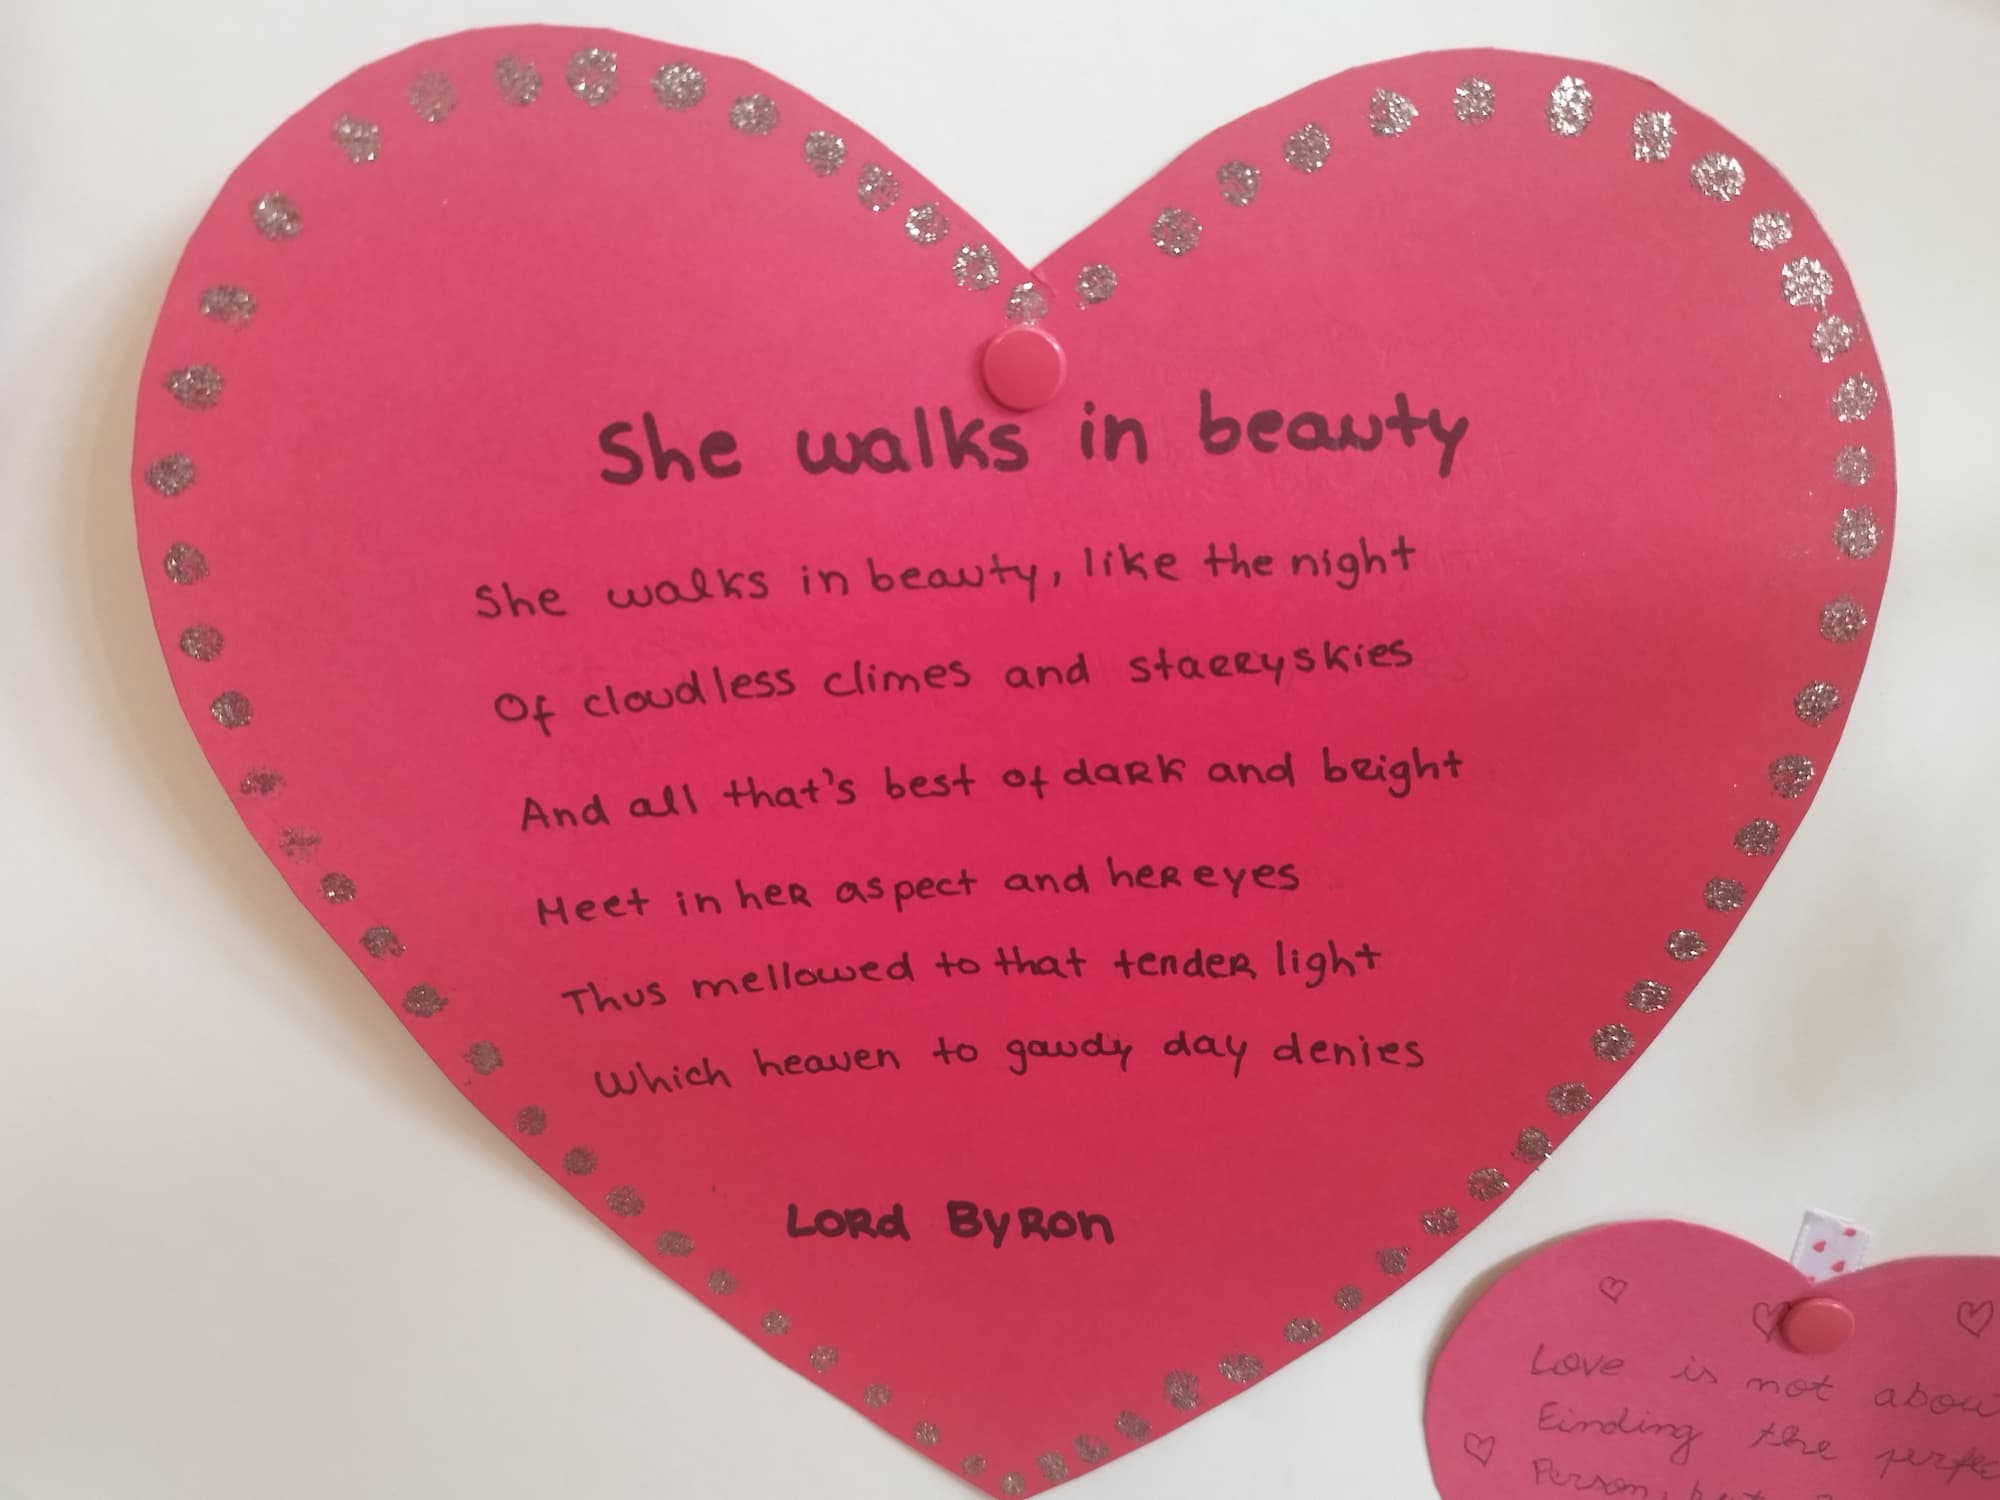 She walks in beauty
She walks in beauty, like the night
Of cloudless climes and starry skies
And all that's best of dark and bright
Meet in her aspect and her eyes
Thus mellowed to that tender light
Which heaven to gaudy day denies
Lord Byron
Love is not abou
Finding the perfec
Person, but